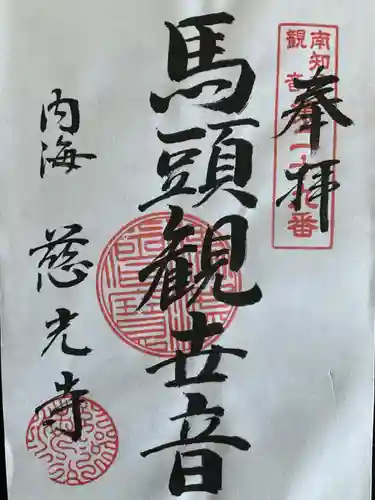 奉拝
南知
観音
二十九番
馬頭観世音
内海
慈光寺